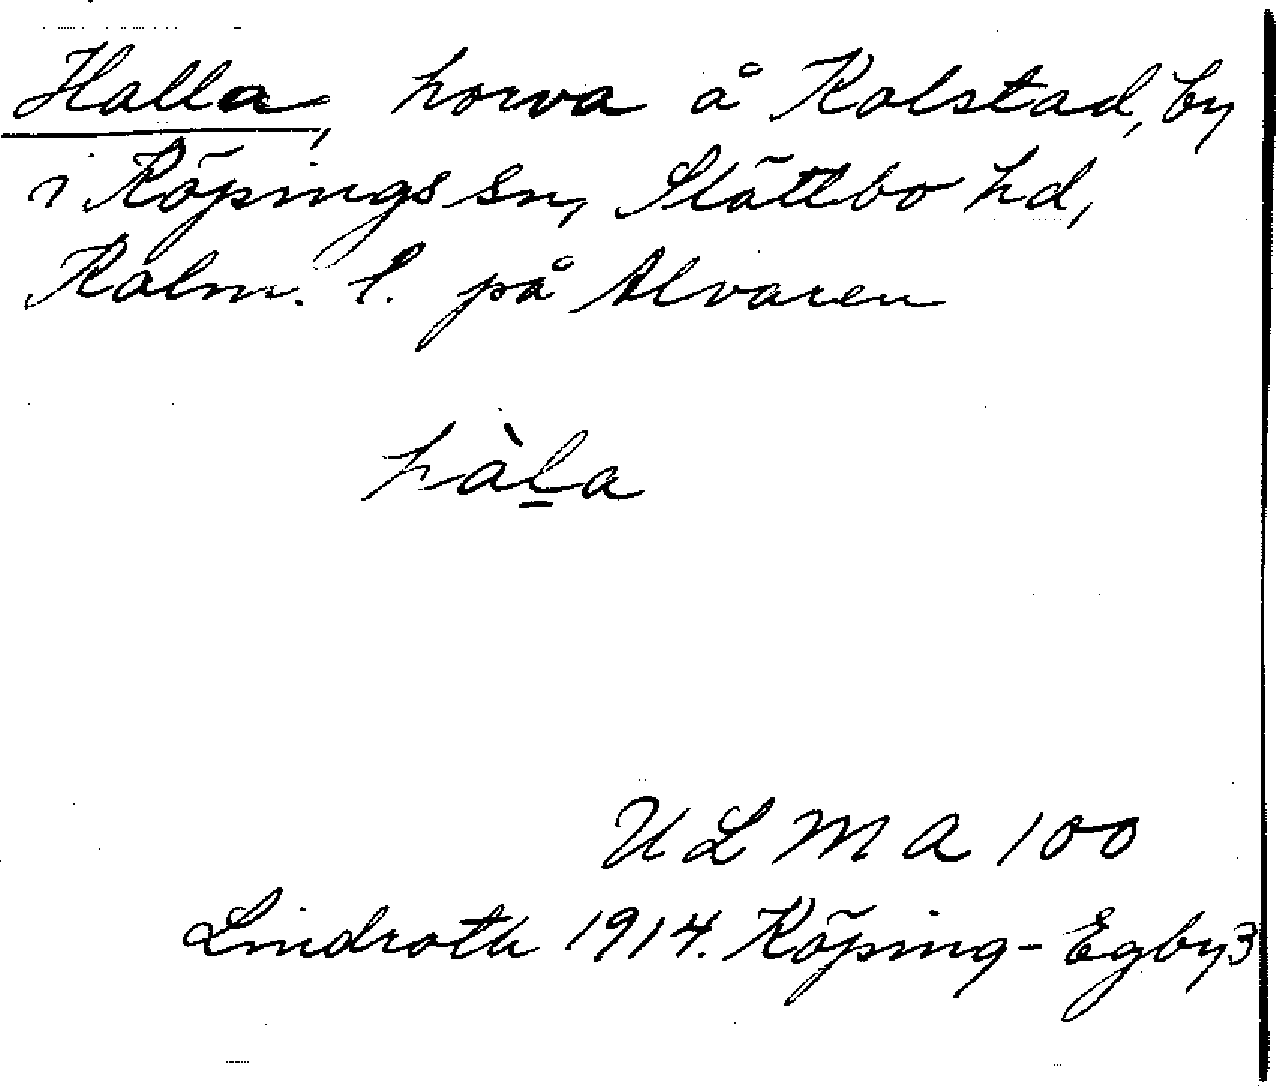 Halla, horva å Kolstad, by
i Köpings sn, Slättbo hd,
Kalm. l. på Alvaren
hàl̲a
ULMA 100
Lindroth 1914. Köping-Egby 3